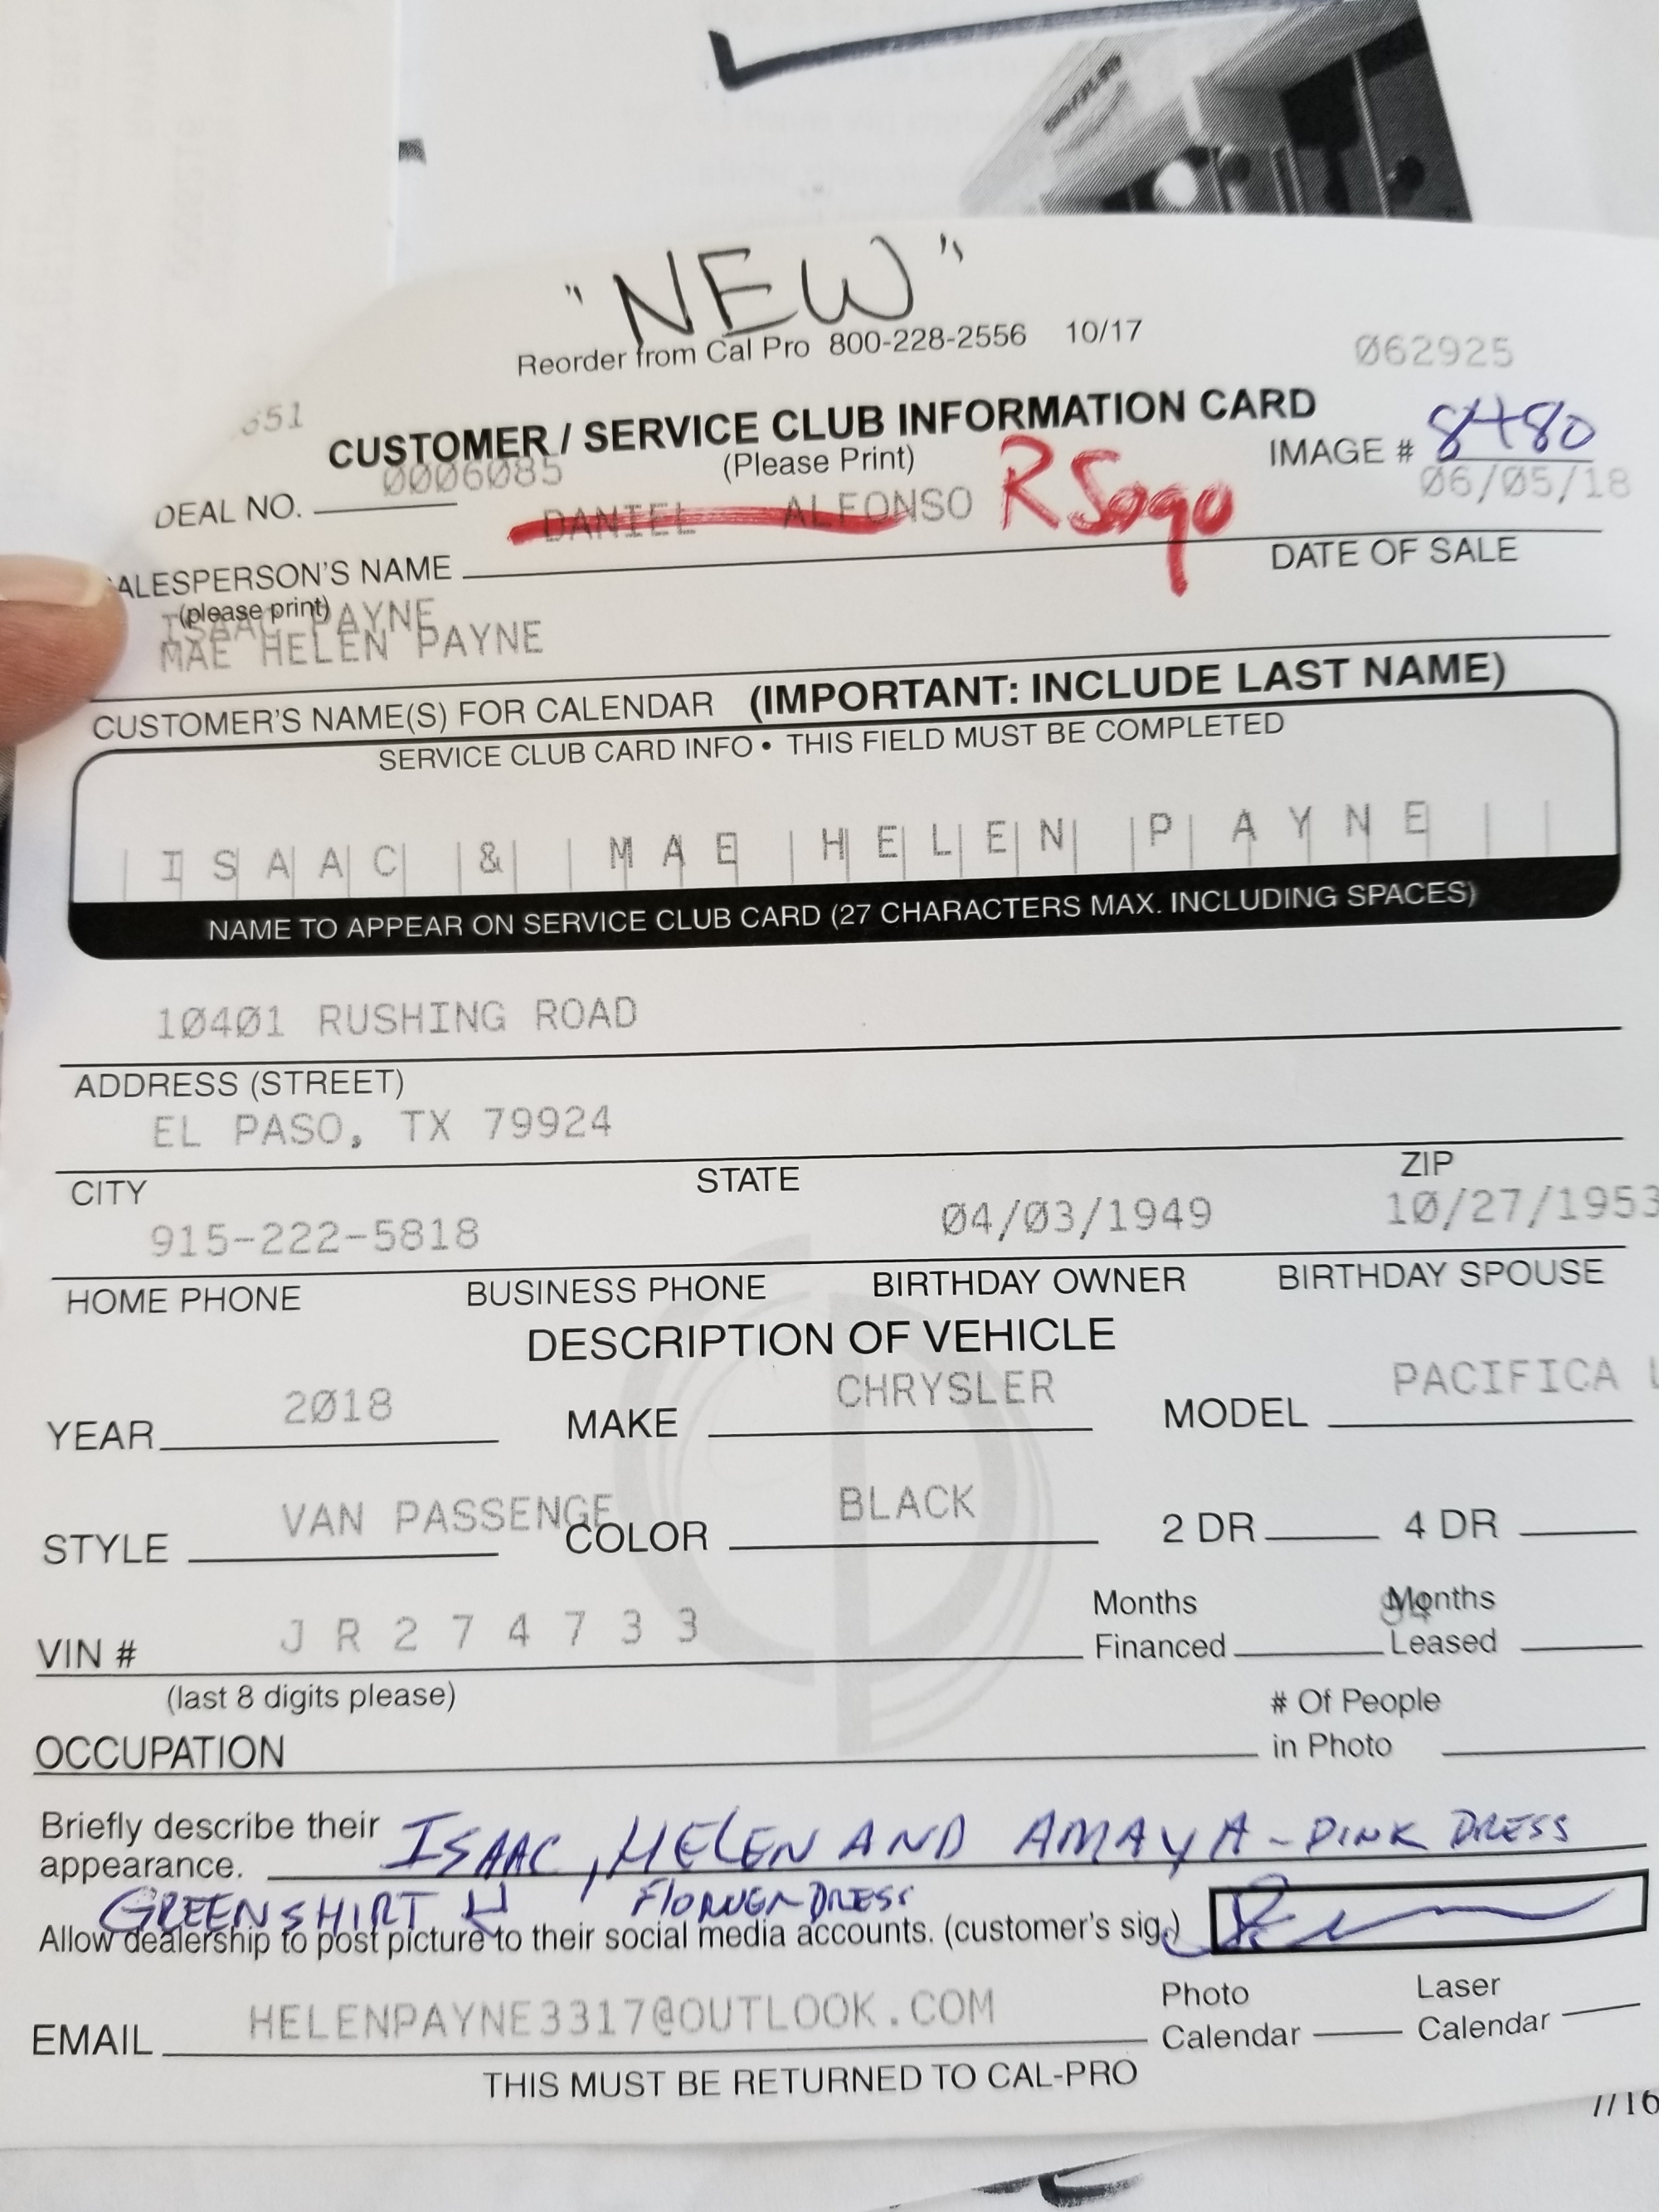 "NEW"
Reorder from Cal Pro 800-228-2556 10/17
062925
651
CUSTOMER / SERVICE CLUB INFORMATION CARD
(Please Print)
IMAGE # 8480
DEAL NO. 0006085
06/05/18
DANIEL ALFONSO RSogo
ALESPERSON'S NAME
DATE OF SALE
(please print)
ISAAC PAYNE
MAE HELEN PAYNE
CUSTOMER'S NAME(S) FOR CALENDAR (IMPORTANT: INCLUDE LAST NAME)
SERVICE CLUB CARD INFO • THIS FIELD MUST BE COMPLETED
ISAAC & MAE HELEN PAYNE
NAME TO APPEAR ON SERVICE CLUB CARD (27 CHARACTERS MAX. INCLUDING SPACES)
10401 RUSHING ROAD
ADDRESS (STREET)
EL PASO, TX 79924
CITY STATE ZIP
915-222-5818 04/03/1949 10/27/1953
HOME PHONE BUSINESS PHONE BIRTHDAY OWNER BIRTHDAY SPOUSE
DESCRIPTION OF VEHICLE
YEAR 2018 MAKE CHRYSLER MODEL PACIFICA L
STYLE VAN PASSENGE COLOR BLACK 2 DR 4 DR
VIN # JR274733
(last 8 digits please)
Months Financed
Months Leased
OCCUPATION
# Of People in Photo
Briefly describe their appearance. ISAAC, HELEN AND AMAYA - PINK DRESS
GREEN SHIRT H FLOWER DRESS
Allow dealership to post picture to their social media accounts. (customer's sig.)
EMAIL HELENPAYNE3317@OUTLOOK.COM
Photo Calendar
Laser Calendar
THIS MUST BE RETURNED TO CAL-PRO
7/16